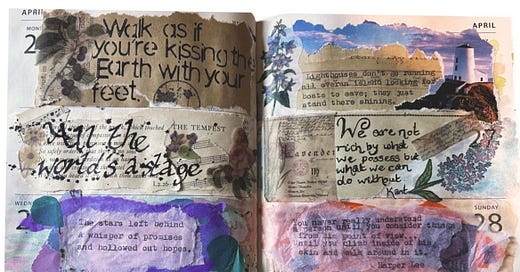 APRIL
MON
2
Walk as if
you're kissing the
Earth with your
feet.
THE TEMPEST
All the
world's a stage
WED
The stars left behind
a whisper of promises
and hollowed out hopes.
APRIL
Lighthouses don't go running
all over an island looking for
boats to save; they just
stand there shining.
Lavender
We are not
rich by what
we possess but
what we can
do without
Kant
SUNDAY
28
You never really understand
a person until you consider things
from his point of view.
Until you climb inside of his
skin and walk around in it.
Harper Lee